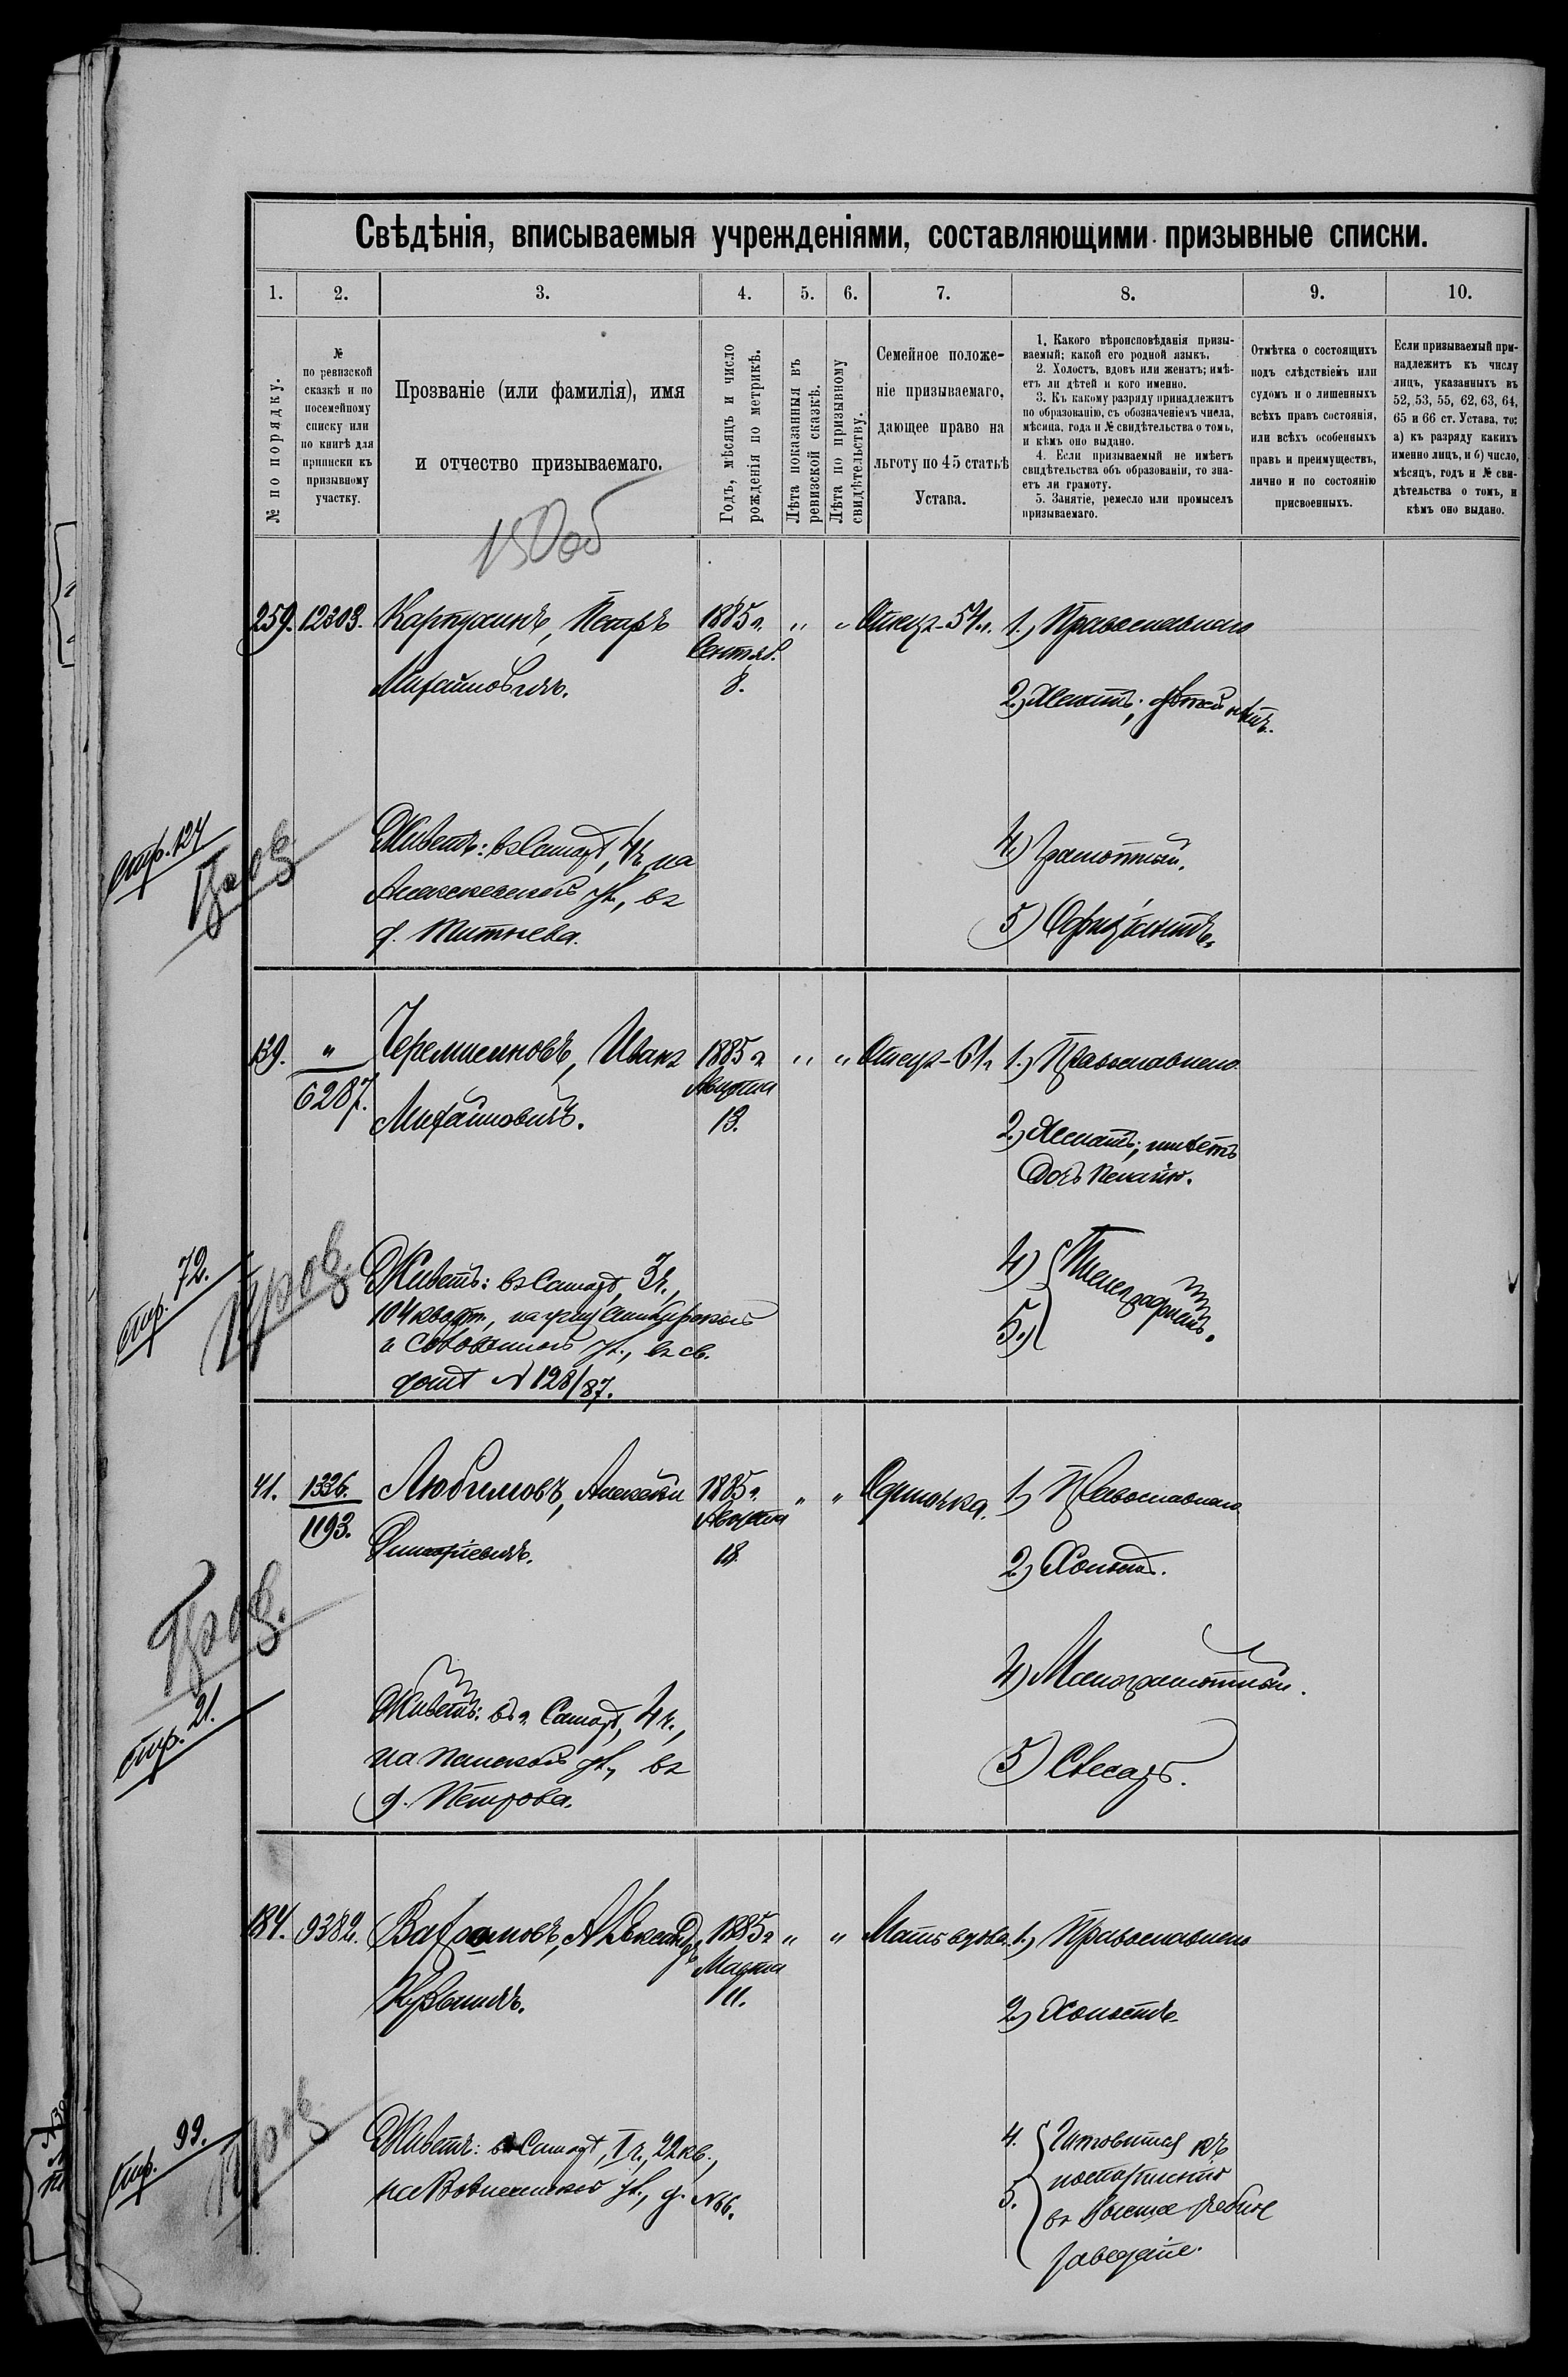 Свѣдѣнія, вписываемыя учрежденіями, составляющими призывные списки.
1. 2. 3. 4. 5. 6. 7. 8. 9. 10.
№ по порядку.
№
по ревизской
сказкѣ и по
посемейному
списку или
по книгѣ для
приписки къ
призывному
участку.
Прозваніе (или фамилія), имя
и отчество призываемаго.
Годъ, мѣсяцъ и число
рожденія по метрикѣ.
Лѣта показанныя въ
ревизской сказкѣ.
Лѣта по призывному
свидѣтельству.
Семейное положе-
ніе призываемаго,
дающее право на
льготу по 45 статьѣ
Устава.
1. Какого вѣроисповѣданія призы-
ваемый; какой его родной языкъ.
2. Холостъ, вдовъ или женатъ; имѣ-
етъ ли дѣтей и кого именно.
3. Къ какому разряду принадлежитъ
по образованію, съ обозначеніемъ числа,
мѣсяца, года и № свидѣтельства о томъ,
и кѣмъ оно выдано.
4. Если призываемый не имѣетъ
свидѣтельства объ образованіи, то зна-
етъ ли грамоту.
5. Занятіе, ремесло или промыселъ
призываемаго.
Отмѣтка о состоящихъ
подъ слѣдствіемъ или
судомъ и о лишенныхъ
всѣхъ правъ состоянія,
или всѣхъ особенныхъ
правъ и преимуществъ,
лично и по состоянію
присвоенныхъ.
Если призываемый при-
надлежитъ къ числу
лицъ, указанныхъ въ
52, 53, 55, 62, 63, 64,
65 и 66 ст. Устава, то:
а) къ разряду какихъ
именно лицъ, и б) число,
мѣсяцъ, годъ и № сви-
дѣтельства о томъ, и
кѣмъ оно выдано.
259. 12303. Карпухинъ, Петръ 1885 г. " " Отецъ-54 л. 1.) Православнаго
Сентяб.
Михайловичъ. 8. 2.) Женатъ; дѣтей нѣтъ.
Стр. 127
Живетъ: въ Самарѣ, 4 ч. на 4.) Грамотный.
Алексеевской ул., въ
д. 5) Официантъ.
139. " Черемшенковъ, Иванъ 1885 г. " " Отецъ-61 г. 1.) Православнаго
6287. Августа
Михайловичъ. 13. 2.) Женатъ; имѣетъ
дочь Пелагію.
стр. 72.
Живетъ: въ Самарѣ, 3 ч., 4)
104 кварт., на углу Симбирской Телеграфистъ.
и Соловьиной ул., въ св. 5.)
домѣ № 128/87.
41. 1336. Любимовъ, Алексѣй 1885 г. " " Одиночка. 1.) Православнаго
1193. Августа
Дмитріевичъ. 18. 2.) Холостъ.
4) Малограмотный.
стр. 21.
Живетъ: въ г. Самарѣ, 4 ч.,
на Панской ул., въ 5) Слесарь.
д. Петрова.
184. 9382. Вахрамовъ, Александръ 1885 г. " " Мать вдова. 1.) Православнаго
Марта
Кузьмичъ. 11. 2.) Холостъ.
стр. 99.
Живетъ: въ Самарѣ, I ч., 22 кв., 4. Готовится къ
на Вознесенской ул., д. № 66. поступленію
5. въ Высшее учебное
заведеніе.